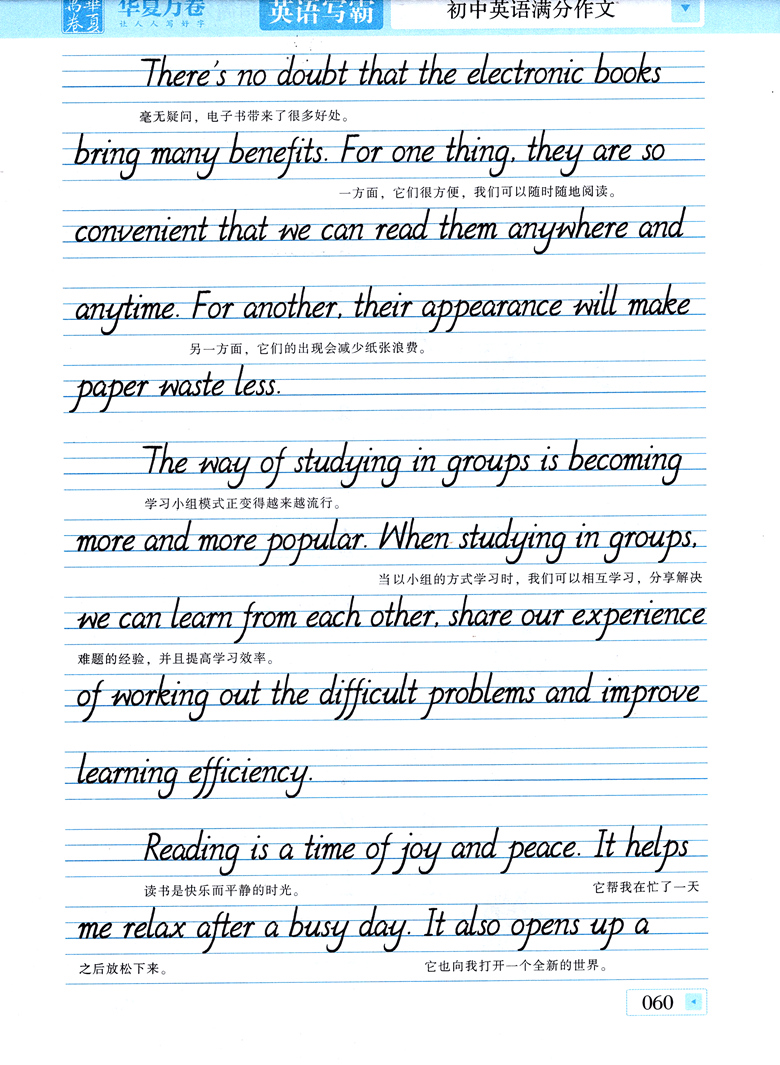 华夏万卷
华夏万卷
让人人写好字
英语写霸
初中英语满分作文
There's no doubt that the electronic books
毫无疑问，电子书带来了很多好处。
bring many benefits. For one thing, they are so
一方面，它们很方便，我们可以随时随地阅读。
convenient that we can read them anywhere and
anytime. For another, their appearance will make
另一方面，它们的出现会减少纸张浪费。
paper waste less.
The way of studying in groups is becoming
学习小组模式正变得越来越流行。
more and more popular. When studying in groups,
当以小组的方式学习时，我们可以相互学习，分享解决
we can learn from each other, share our experience
难题的经验，并且提高学习效率。
of working out the difficult problems and improve
learning efficiency.
Reading is a time of joy and peace. It helps
读书是快乐而平静的时光。 它帮我在忙了一天
me relax after a busy day. It also opens up a
之后放松下来。 它也向我打开一个全新的世界。
060